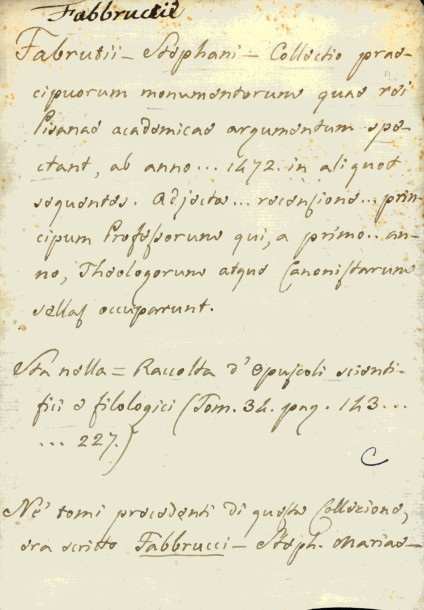 Fabbruccii
Fabrutii – Stephani – Collectio prae-
cipuorum monumentorum quae rei
Pisanae academicae argumentum spe-
ctant, ab anno... 1472. in aliquot
sequentes. Adjecta... recensione... prin-
cipum Professorum qui, a primo.. an-
no, Theologorum atque Canonistarum
sellas occuparunt.
Sta nella = Raccolta d'Opuscoli scienti-
fici e filologici (Tom. 34. pag. 143...
... 227.)
C
Ne' tomi precedenti di questa Collezione,
era scritto Fabbrucci – Steph. Mariae –